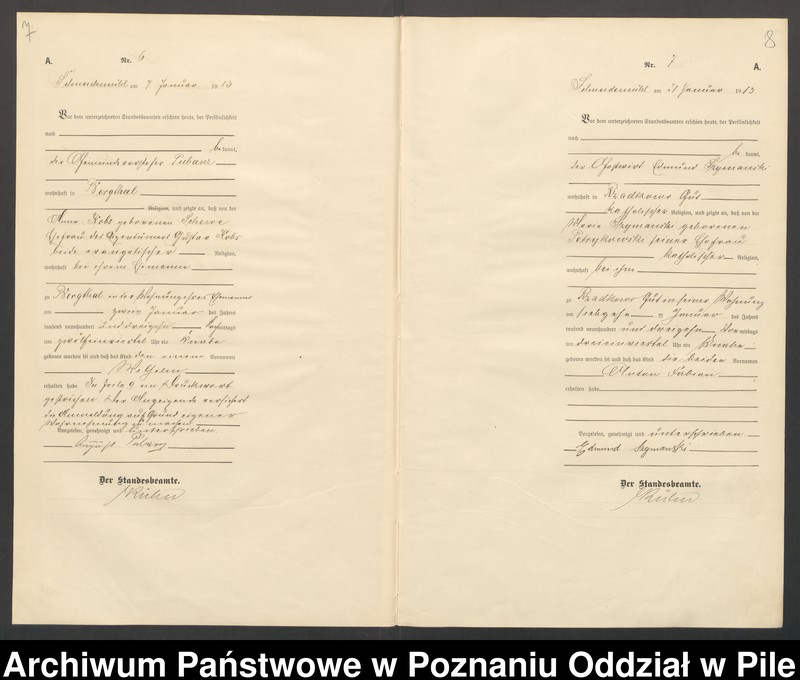 7
A.
Nr. 6
Schneidemühl am 7 Januar 1913
Vor dem unterzeichneten Standesbeamten erschien heute, der Persönlichkeit
nach
bekannt,
der Gemeindevorsteher
wohnhaft in Bergthal
Religion, und zeigte an, daß von der
Anna Kobs geborenen Scherve
Ehefrau des Eigentümers Gustav Kobs
beide evangelischer Religion,
wohnhaft bei ihrem Ehemanne
zu Bergthal in der Wohnung ihres Ehemannes
am zwei Januar des Jahres
tausend neunhundert und dreizehn mittags
um zwölfeinviertel Uhr ein Knabe
geboren worden ist und daß das Kind den einen Vornamen
Wilhelm
erhalten habe. In Zeile 9 ein Druckwort
gestrichen. Der Anzeigende versichert
die Anmeldung auf Grund eigener
Wahrnehmung zu machen
Vorgelesen, genehmigt und unterschrieben.
August
Der Standesbeamte.
8
Nr. 7
A.
Schneidemühl am 21 Januar 1913
Vor dem unterzeichneten Standesbeamten erschien heute, der Persönlichkeit
nach
bekannt,
der Edmund Szymanski
wohnhaft in Gut
katholischer Religion, und zeigte an, daß von der
Marie Szymanski geborenen
seiner Ehefrau
katholischer Religion,
wohnhaft bei ihm
zu Gut in seiner Wohnung
am siebzehn Januar des Jahres
tausend neunhundert und dreizehn Vormittags
um dreieinviertel Uhr ein Knabe
geboren worden ist und daß das Kind die beiden Vornamen
Anton Fabian
erhalten habe
Vorgelesen, genehmigt und unterschrieben
Edmund Szymanski
Der Standesbeamte.
Archiwum Państwowe w Poznaniu Oddział w Pile